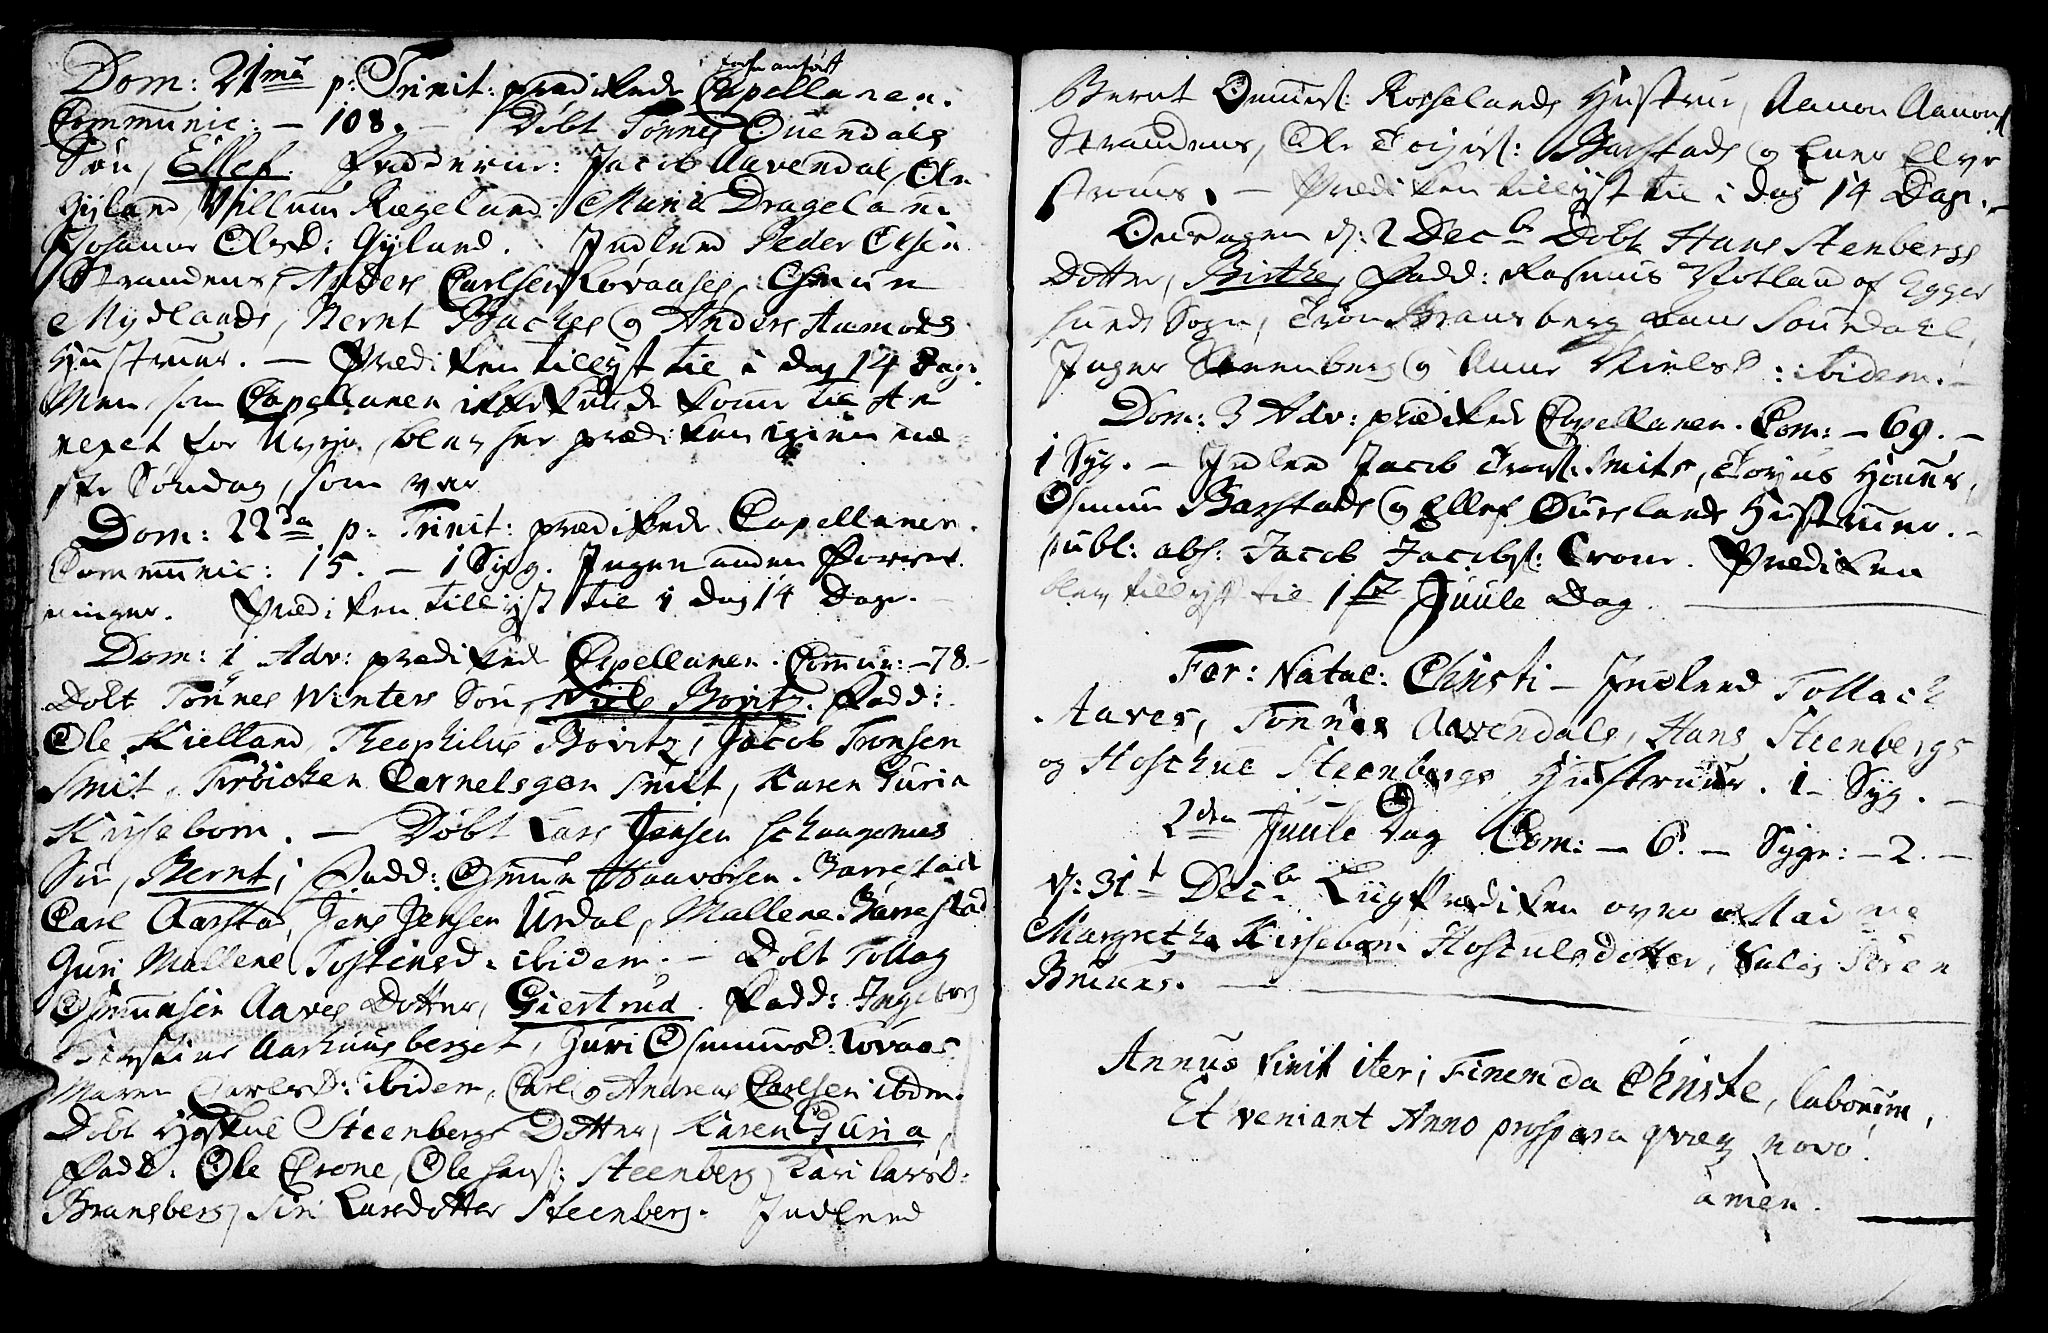 Dom: 21ma p: Trinit: prædikede Capellanen.
Communic: — 108. — Døbt Tønnes Ouendals
Søn, Ellef. Fadderne: Jacob Aavendal, Ole
Gyland, Villum Rægeland: Maria Drageland
Josanne Olesd: Gyland. Indlend Peder Olsen
Strandens, Anders Carlsen Lovaases, Osmun
Mydlands, Bernt Backes og Anders Aamods
Hustruer. — Prædiken tillyst til i dag 14 Dage.
Men som Capellanen ikke kunde komme til An
nexet for Uvejr, blev her prædiken igien næ
ste Søndag, som var
Dom: 22da p: Trinit: prædikede Capellanen.
Communic: 15. — 1 Syg. Ingen anden Forret
ninger. Prædiken tillyst til i dag 14 Dage. —
Dom: 1 Adv: prædikede Capellanen. Commun: — 78. —
Døbt Tønnes Winters Søn, Niels Bovitz. Fadd:
Ole Kielland, Theophilus Bovitz, Jacob Tronsen
Smit, Carnelsgen Smit, Karen Guria
Kirsebom. — Døbt Lars Jensen
Søn, Bernt; Fadd: Osmun Haavorsen Barrestad
Carl Aarstad, Jens Jensen Urdal, Mallene Barrestad
Guri Mallene Tostensd. ibidem. — Døbt Tollag
Osmunsen Aaves Dotter, Giertrud. Fadd: Ingeborg
Aarhuusberget, Guri Osmunsd: Lovaas
Maren Carlsd: ibidem, Carl og Andreas Carlsen ibdm.
Døbt Hoskue Steenbergs Dotter, Karen Guria,
Fadd. Ole Crone, Ole Hans: Steenberg, Kari Larsd:
Bransberg, Siri Larsdotter Steenberg. Indlend
Bernt Omunds: Rosselands Hustrue, Aanon Aanons
Strandens, Ole Torjus: Barstads og Ener Elve
struus. — Prædiken tillyst til i dag 14 Dage. —
Onsdagen d: 2 Decbr Døbt Hans Steenbergs
Dotter, Birthe, Fadd: Rasmus Netland af Egger
sunds Sogn, Tron Bransberg, Sourdahl,
Inger Steenberg og Anne Nielsd: ibidem. —
Dom: 3 Adv: prædikede Capellanen. Com: — 69. —
1 Syg. — Indlend Jacob Trons: Smits, Torjus
Osmun Barstads og Ellef Ourslands Hustruer. —
publ: abs: Jacob Jacobs: Crone. Prædiken
blev tillyst til 1ste Juule Dag.
Fer: Natal: Christi — Indlend Tollach
Aaves, Tønnes Aavendals, Hans Steenbergs
og Hoschue Steenbergs Hustruer. 1 — Syg. —
2den Juule Dag Com: — 6. — Syge: — 2. —
d: 31t Decbr Liigprædiken over Madme
Margrethe Kirsebom Hoskulsdotter, Salig Søren
Bruuns. —
Annus finit iter; Finem da Christe, laborum,
Et veniant Anno prospera quæq novo!
amen.